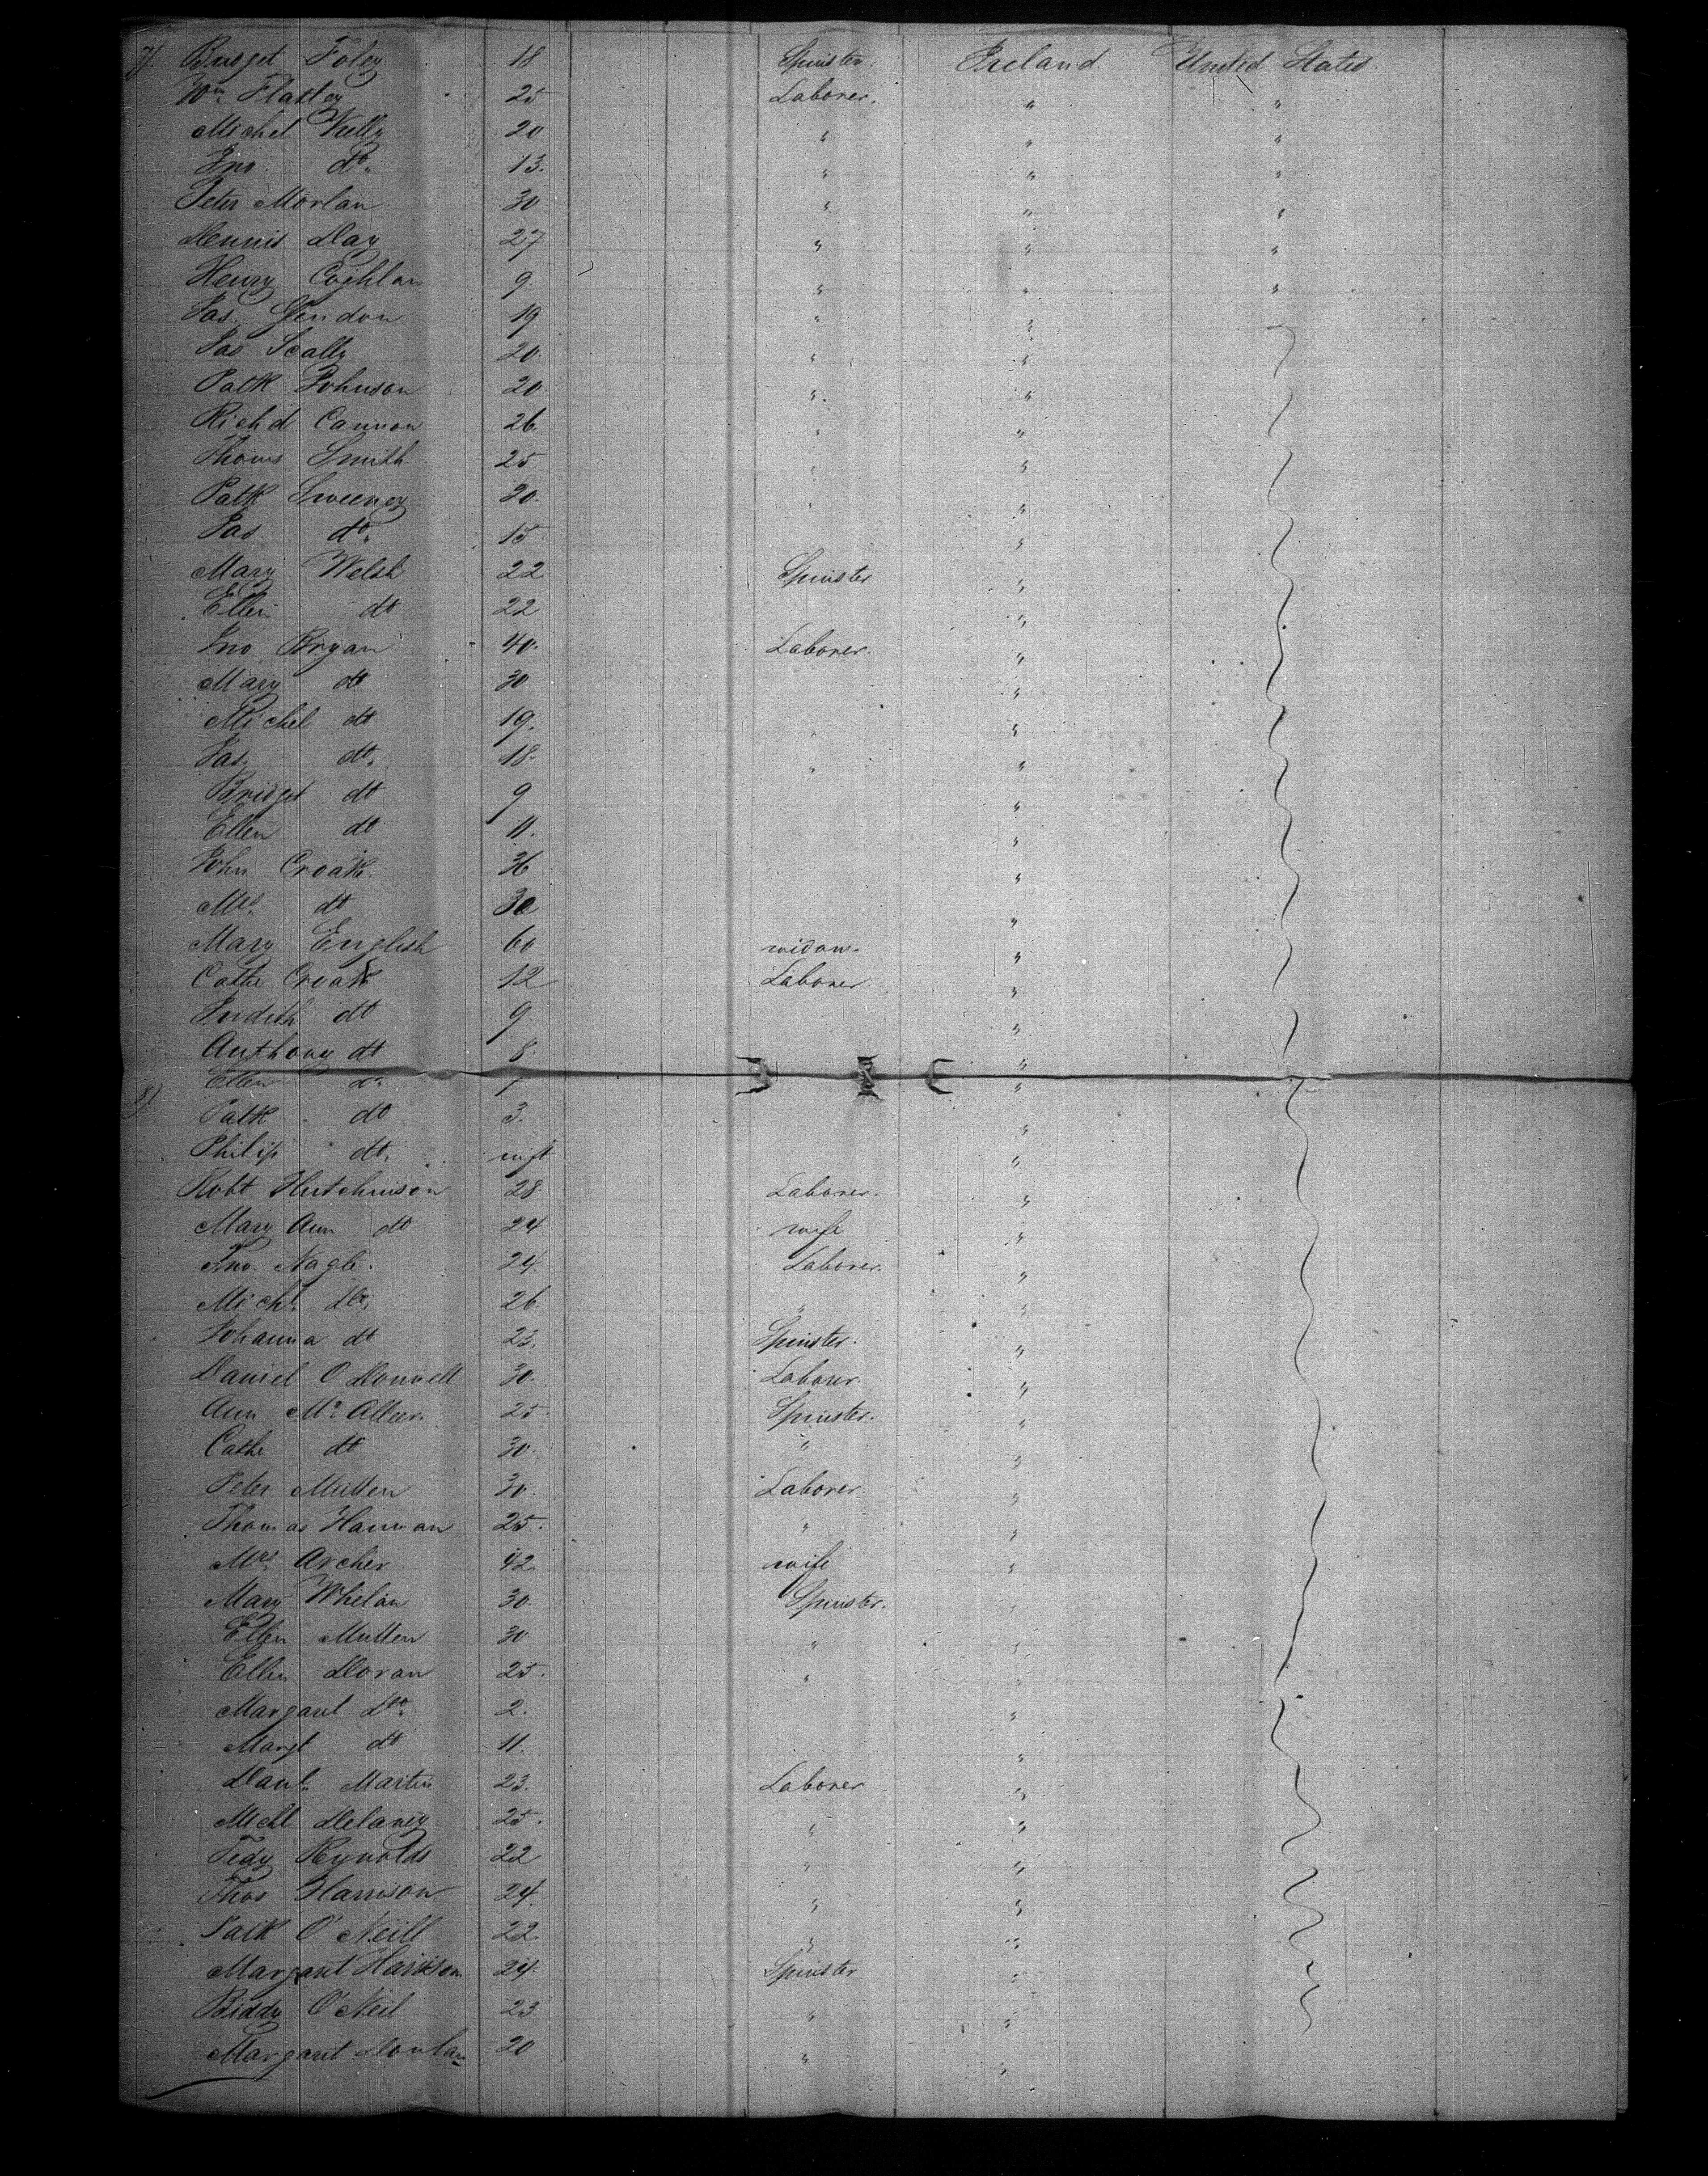 7) Bridget Foley 18 Spinster. Ireland United States
Wm. Flatley 25 Laborer. " "
Michel Kelly 20 " " "
Jno. do. 13. " " "
Peter Morlan 30 " " "
Dennis Day 27 " " "
Henry Coghlan 9. " " "
Jas. 19 " "
Jas Scally 20. " "
Patk Johnson 20 " "
Richd Cannon 26 " "
Thoms Smith 25 " "
Patk Sweeney 20. " "
Jas do. 15 "
Mary Welsh 22 Spinster "
Ellen do 22 "
Jno Bryan 40. Laborer. "
Mary do 30 "
Michel do 19. " "
Jas. do. 18. " "
Bridget do 9 "
Ellen do 11. "
John Croak. 36 "
Mrs. do 30 "
Mary English 60 widow. "
Cathe Croak 12 Laborer "
Judith do 9. "
Anthony do 8. "
Ellen do. "
8) Patk do 3. "
Philip do. inft "
Robt Hutchinson 28 Laborer. "
Mary Ann do 24 wife "
Jno. Nagle. 24 Laborer. "
Michl. do. 26. " "
Johanna do 23. Spinster. "
Daniel O Donnell 30. Laborer. "
Ann Mc Aleer. 25. Spinster. "
Cathe do 30. " "
Peter Mullen 30. Laborer. "
Thomas Hannan 25. " "
Mrs. Archer 42 wife "
Mary Whelan 30. Spinster. "
Ellen Mullen 30 " "
Ellen Doran 25. " "
Margaret Do. 2. "
Margt do 11. "
Danl. Martin 23. Laborer "
Michl Delaney 25. " "
Tedy Reynolds 22 " "
Thos Harrison 24. " "
Patk O'Neill 22. " "
Margaret Harrison 24. Spinster "
Biddy O'Neil 23 " "
Margaret Donlan 20 " "